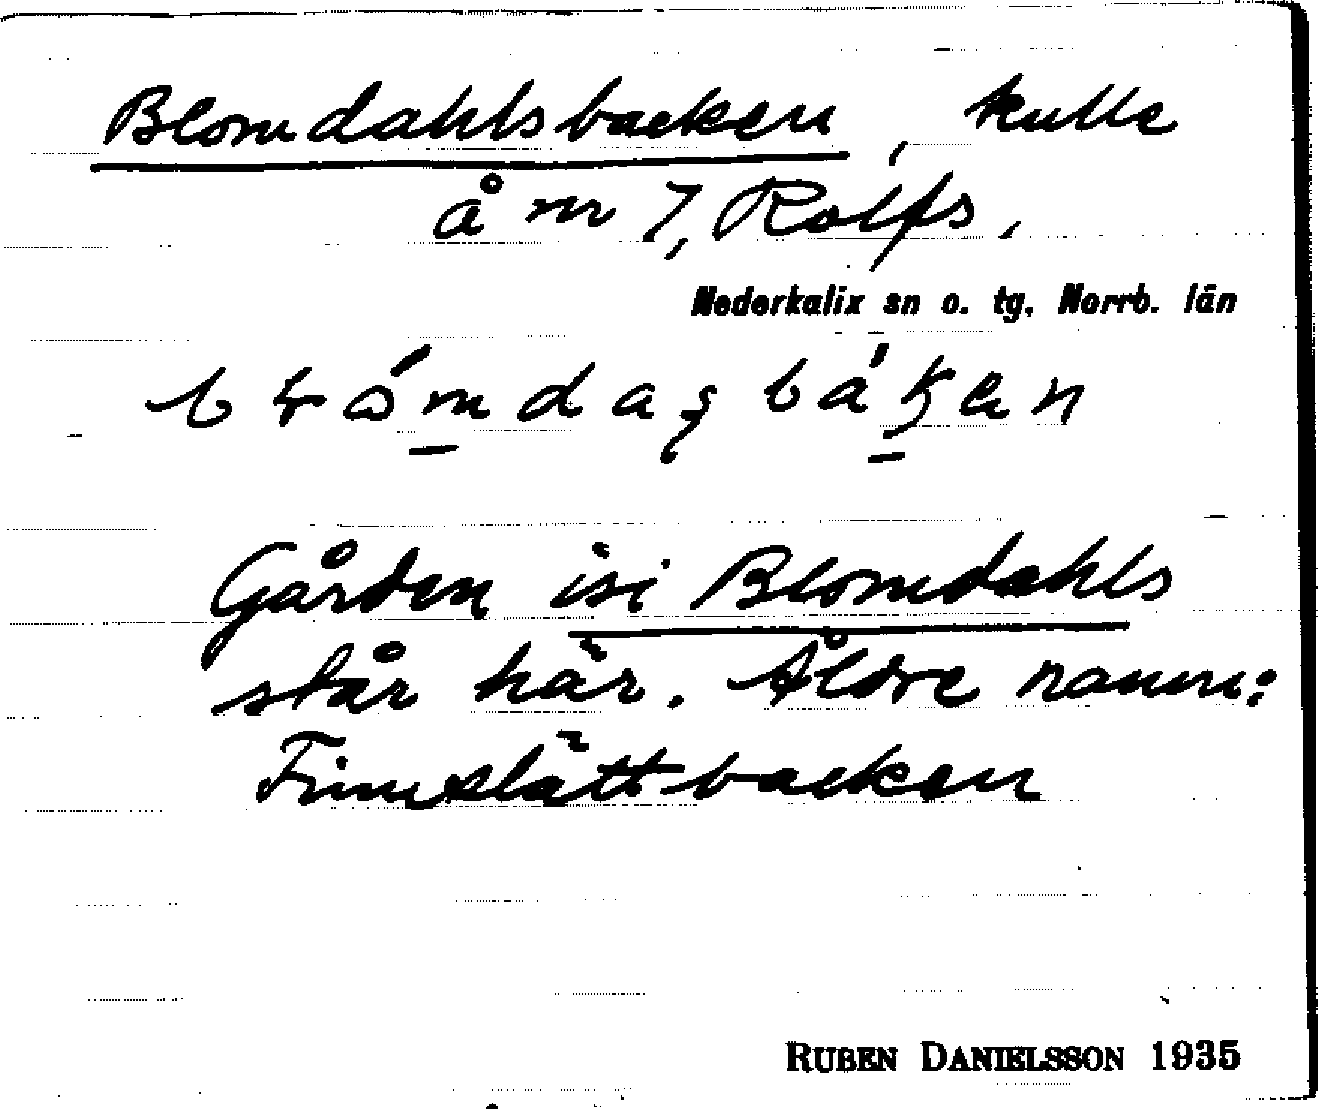 Blomdahlsbacken, kulle
å nr 7, Rolfs,
Nederkalix sn o. tg, Norrb. län
Gården isi Blomdahls
står här. Äldre namn:
Finnslättbacken
RUBEN DANIELSSON 1935